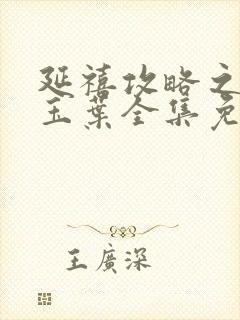 延禧攻略之
玉葉全集免
王廣深